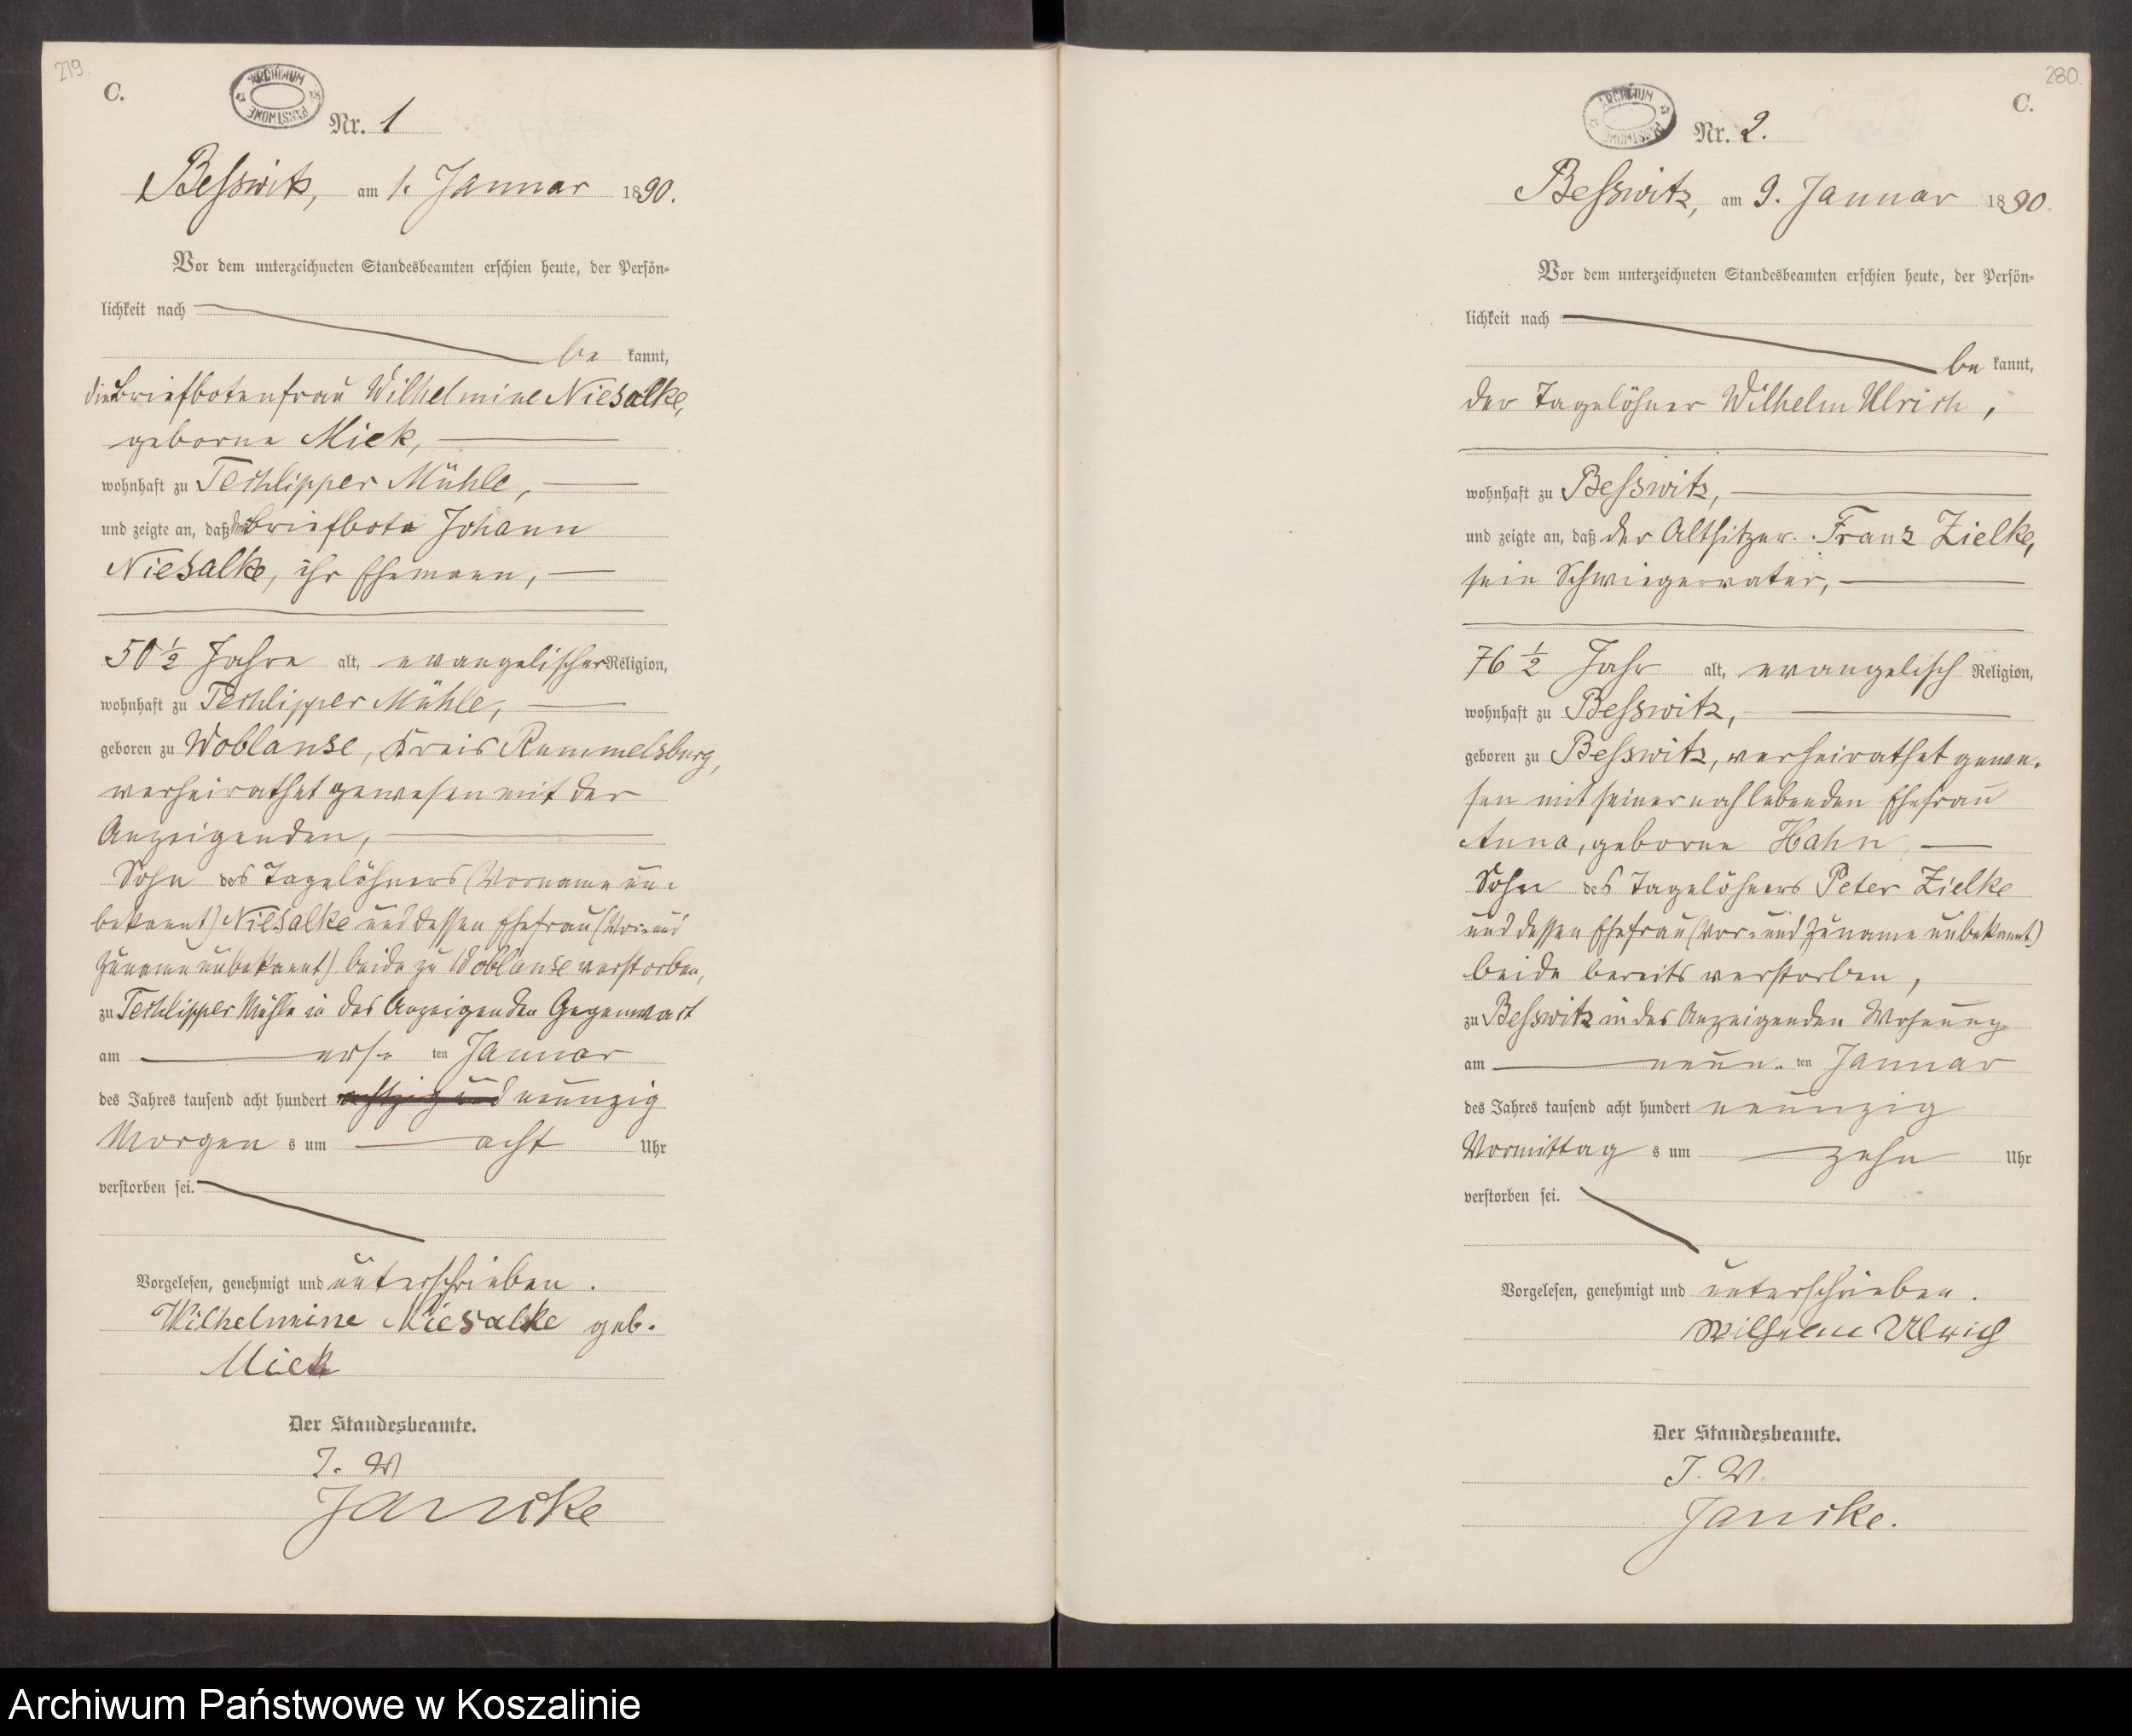 279.
C.
ARCHIWUM PAŃSTWOWE
Nr. 1
Beßwitz, am 1. Januar 1890.
Vor dem unterzeichneten Standesbeamten erschien heute, der Persön-
lichkeit nach
be kannt,
die Briefbotenfrau Wilhelmine Niesalke,
geborne Miek,
wohnhaft zu Techlipper Mühle,
und zeigte an, daß der Briefbote Johann
Niesalke, ihr Ehemann,
50 ½ Jahre alt, evangelischer Religion,
wohnhaft zu Techlipper Mühle,
geboren zu Woblanse, Kreis Rummelsburg,
verheirathet gewesen mit der
Anzeigenden,
Sohn des Tagelöhners (Vorname un-
bekannt) Niesalke und dessen Ehefrau (Vor- und
Zuname unbekannt) beide zu Woblanse verstorben,
zu Techlipper Mühle in der Anzeigenden Gegenwart
am ersten Januar
des Jahres tausend acht hundert achtzig und neunzig
Morgens um acht Uhr
verstorben sei.
Vorgelesen, genehmigt und unterschrieben.
Wilhelmine Niesalke geb.
Miek
Der Standesbeamte.
J. V.
Jancke
280.
C.
ARCHIWUM PAŃSTWOWE
Nr. 2.
Beßwitz, am 9. Januar 1890.
Vor dem unterzeichneten Standesbeamten erschien heute, der Persön-
lichkeit nach
be kannt,
der Tagelöhner Wilhelm Ulrich,
wohnhaft zu Beßwitz,
und zeigte an, daß der Altsitzer Franz Zielke,
sein Schwiegervater,
76 ½ Jahr alt, evangelisch Religion,
wohnhaft zu Beßwitz,
geboren zu Beßwitz, verheirathet gewe-
sen mit seiner noch lebenden Ehefrau
Anna, geborne Hahn,
Sohn des Tagelöhners Peter Zielke
und dessen Ehefrau (Vor- und Zuname unbekannt)
beide bereits verstorben,
zu Beßwitz in des Anzeigenden Wohnung
am neunten Januar
des Jahres tausend acht hundert neunzig
Vormittags um zehn Uhr
verstorben sei.
Vorgelesen, genehmigt und unterschrieben.
Wilhelm Ulrich
Der Standesbeamte.
J. V.
Jancke.
Archiwum Państwowe w Koszalinie